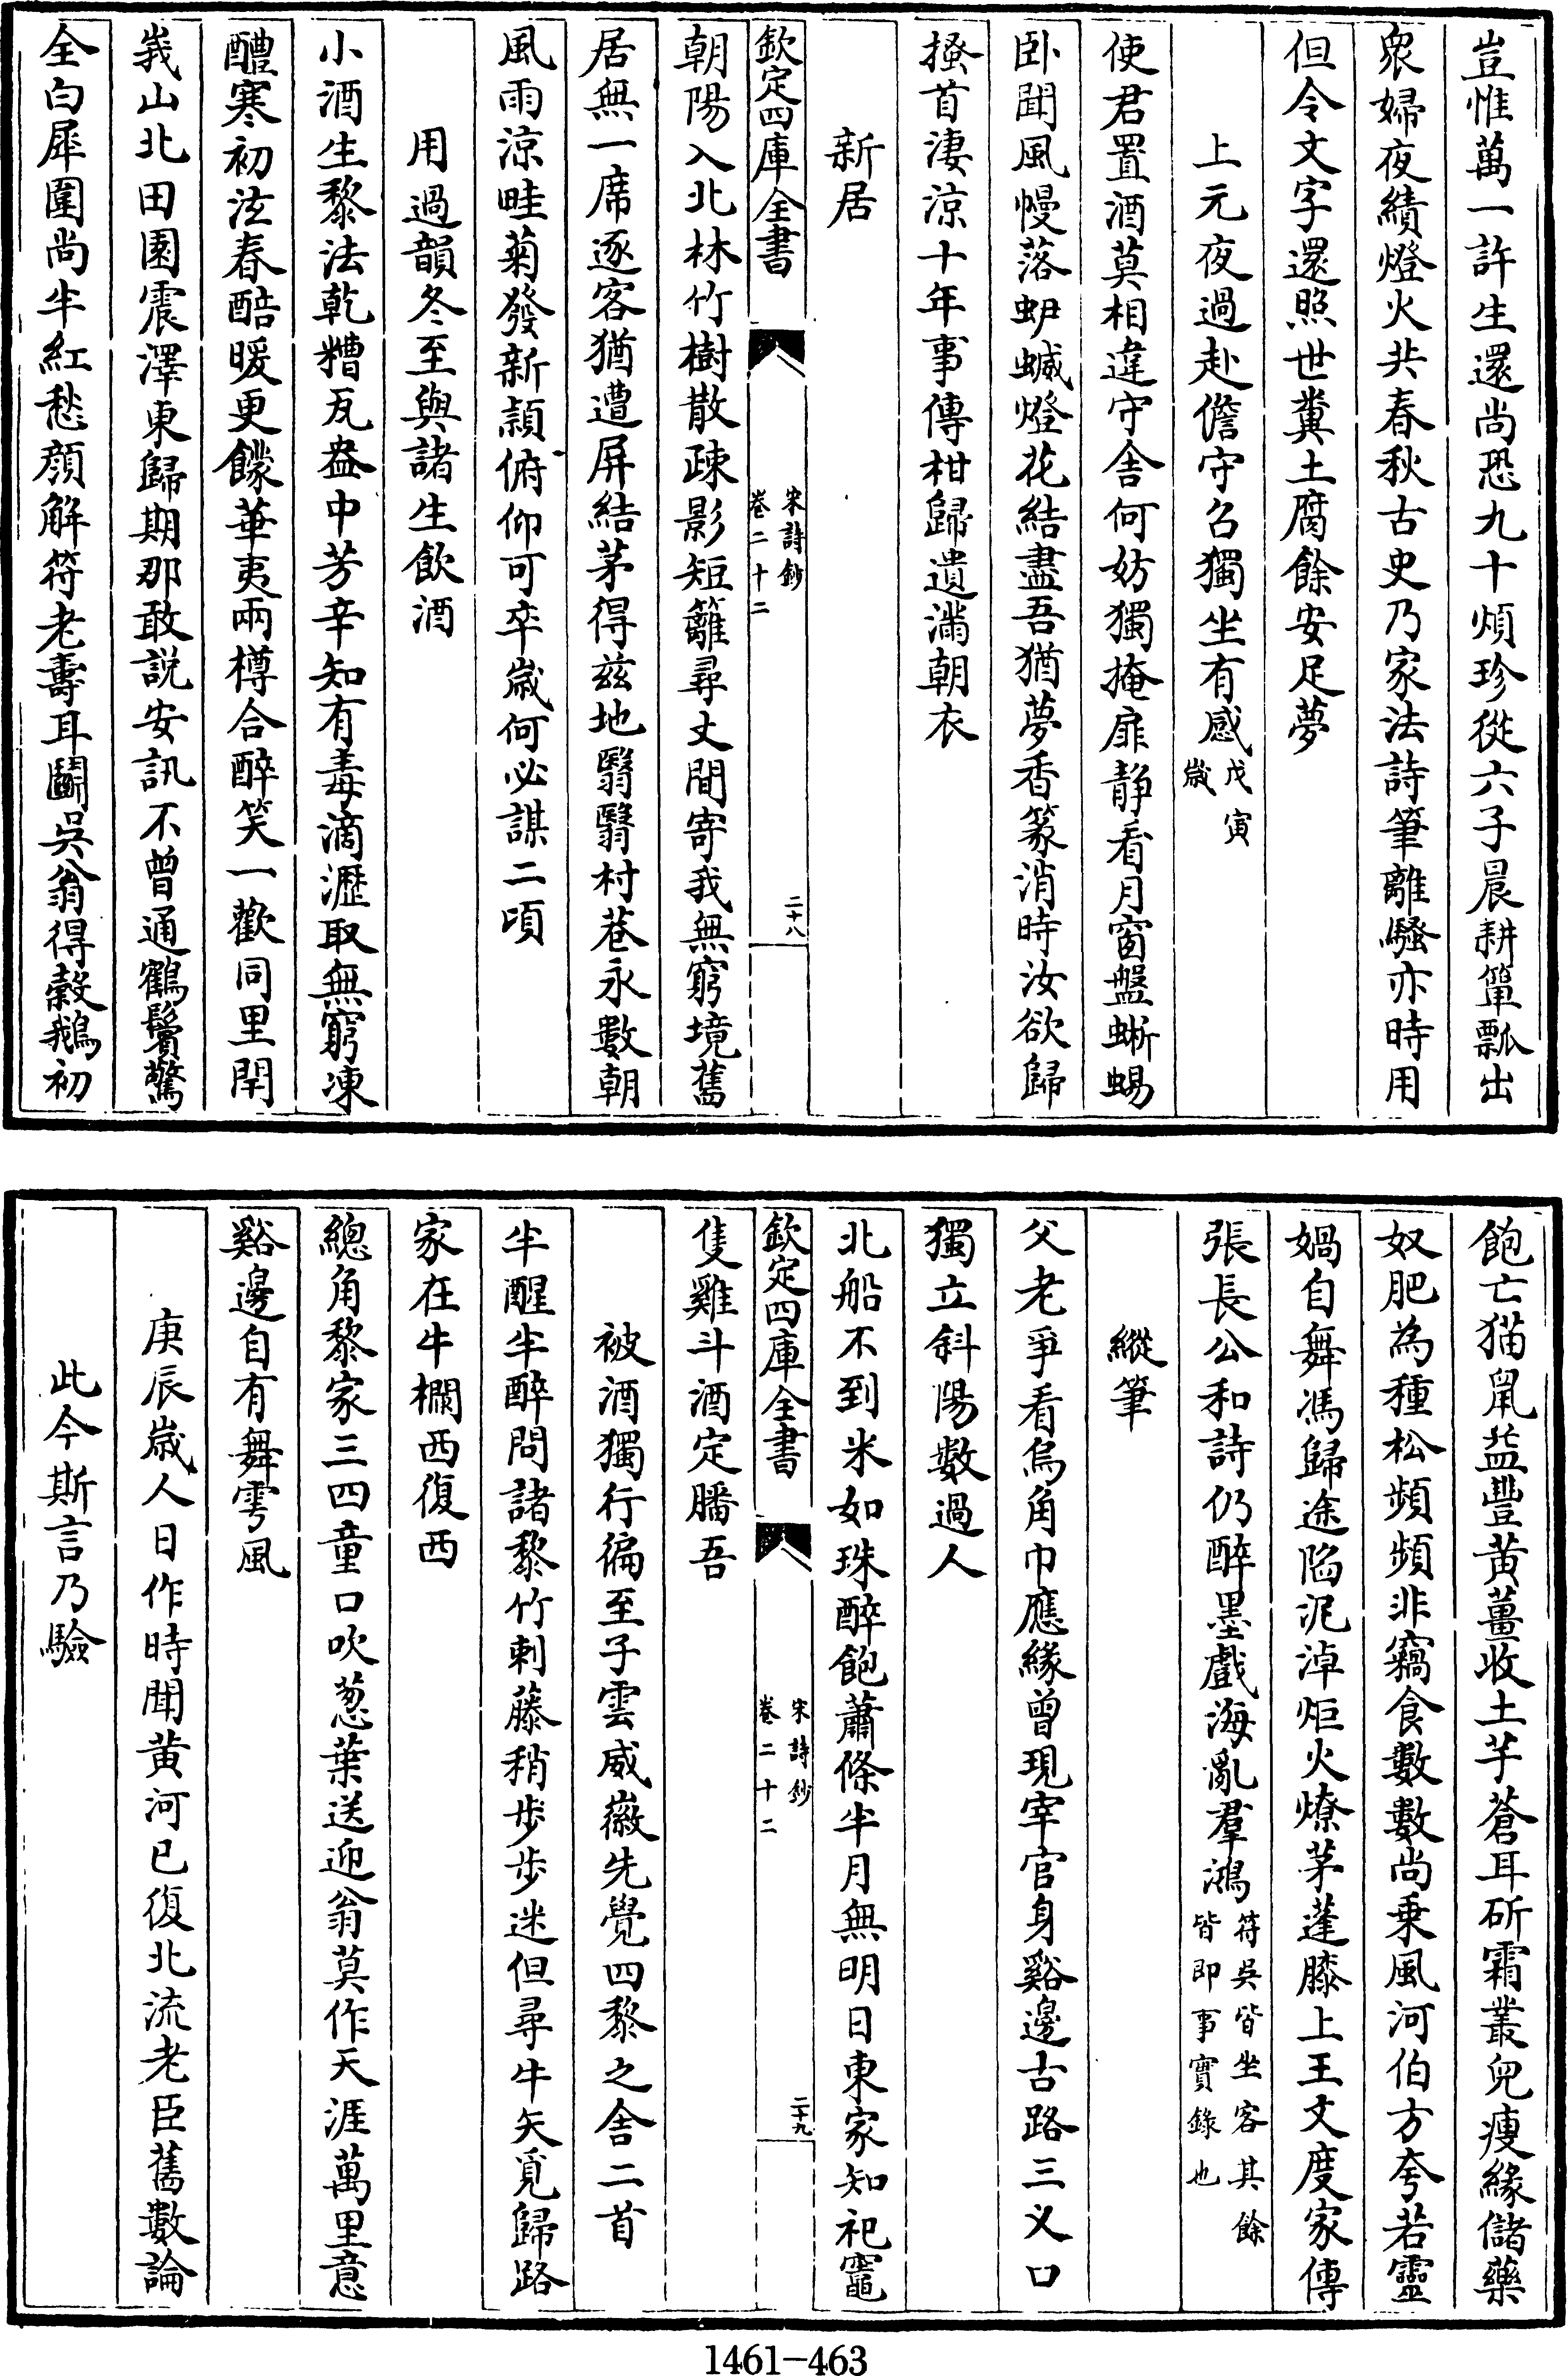 豈惟萬一許生還尚恐九十煩珍從六子晨耕簞瓢出
衆婦夜績燈火共春秋古史乃家法詩筆離騷亦時用
但令文字還照世糞土腐餘安足夢
上元夜過赴儋守召獨坐有感戊寅歲
使君置酒莫相違守舎何妨獨掩扉静看月窗盤蜥蜴
卧聞風幔落蛜蝛燈花結盡吾猶夢香篆消時汝欲歸
搔首凄涼十年事傳柑歸遺滿朝衣
新居
欽定四庫全書
宋詩鈔
卷二十二
二十八
朝陽入北林竹樹散疎影短籬尋丈間寄我無窮境舊
居無一席逐客猶遭屏結茅得兹地翳翳村巷永數朝
風雨涼畦菊發新穎俯仰可卒歲何必謀二頃
用過韻冬至與諸生飲酒
小酒生黎法乾糟瓦盎中芳辛知有毒滴瀝取無窮凍
醴寒初泫春醅暖更饛華夷兩樽合醉笑一歡同里閈
峩山北田園震澤東歸期那敢説安訊不曾通鶴鬢驚
全白犀圍尚半紅愁顔解符老壽耳鬭吳翁得穀鵝初
飽亡猫鼠益豐黄薑收土芋蒼耳斫霜叢兒瘦緣儲藥
奴肥為種松頻頻非竊食數數尚乗風河伯方夸若靈
媧自舞馮歸途陷泥淖炬火燎茅蓬膝上王文度家傳
張長公和詩仍醉墨戲海亂羣鴻符吳皆坐客其餘皆即事實錄也
縱筆
父老爭看烏角巾應緣曾現宰官身谿邊古路三义口
獨立斜陽數過人
北船不到米如珠醉飽蕭條半月無明日東家知祀竈
欽定四庫全書
宋詩鈔
卷二十二
二十九
隻雞斗酒定膰吾
被酒獨行徧至子雲威徽先覺四黎之舎二首
半醒半醉問諸黎竹刺藤稍步步迷但尋牛矢覓歸路
家在牛欄西復西
總角黎家三四童口吹葱葉送迎翁莫作天涯萬里意
谿邊自有舞雩風
庚辰歲人日作時聞黄河已復北流老臣舊數論
此今斯言乃驗
1461-463